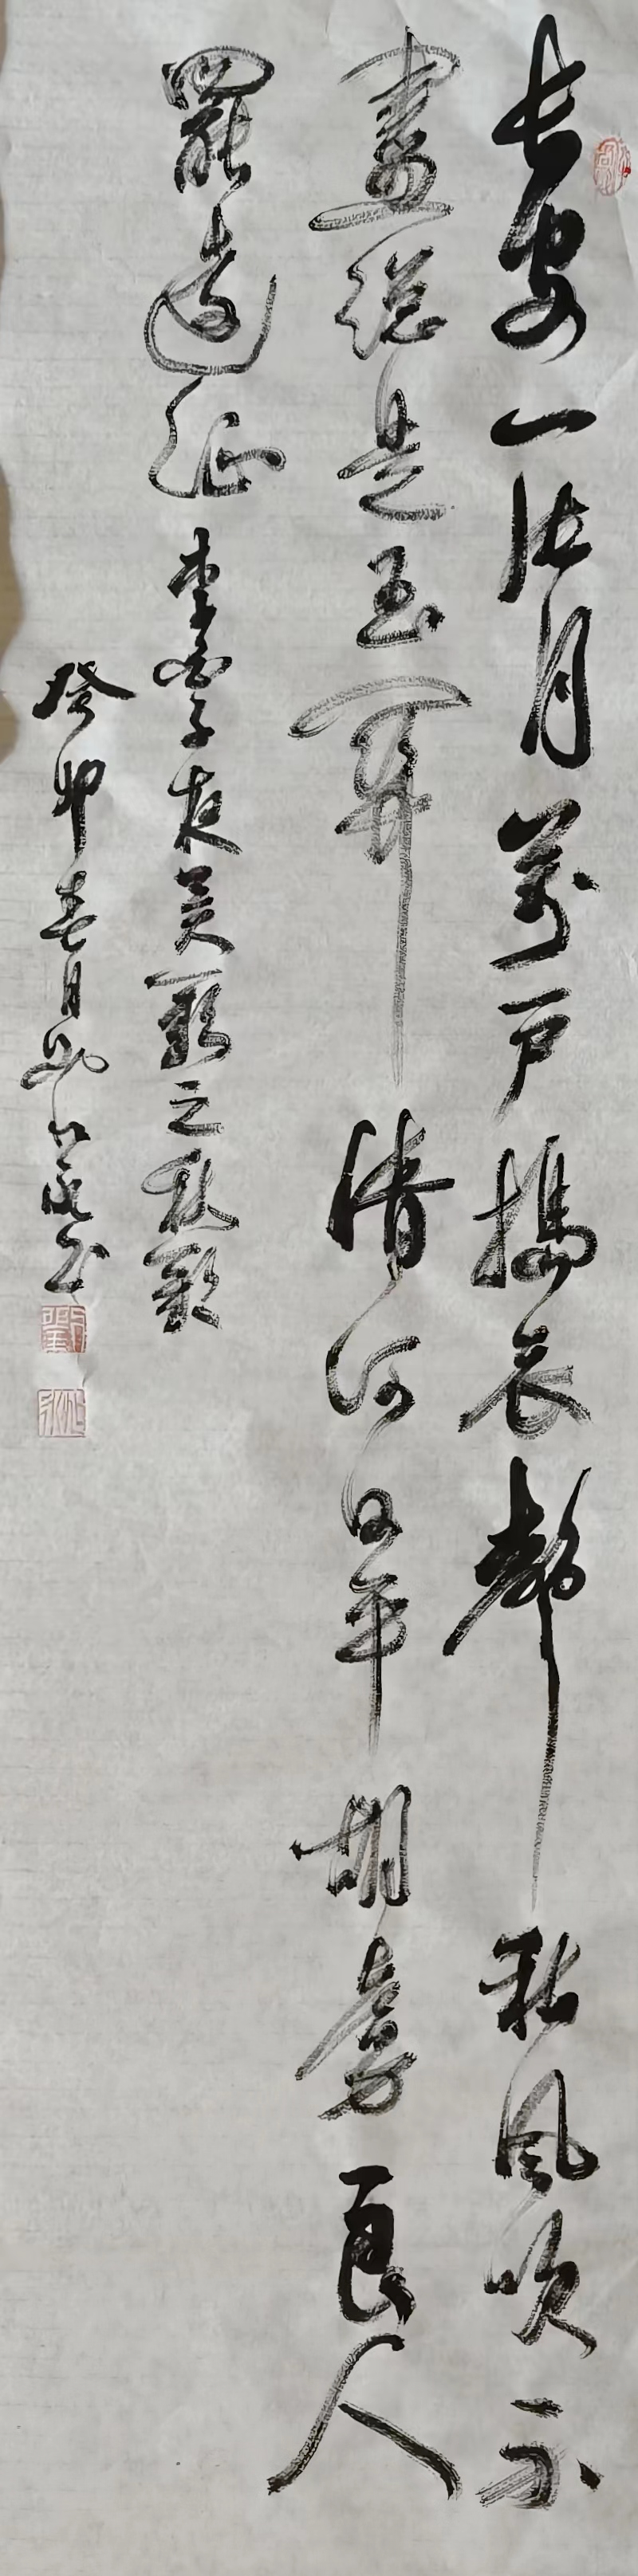 長安一片月萬戶搗衣聲秋風吹不
盡總是玉關情何日平胡虜良人
罷遠征 李白子夜吴歌之秋歌
癸卯春月书